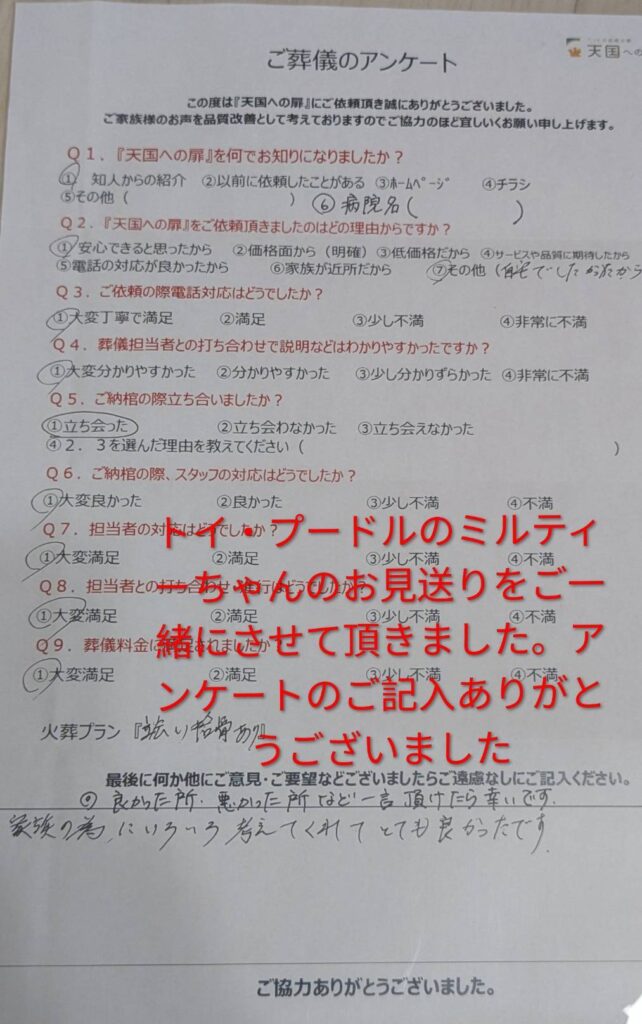 天国への
ご葬儀のアンケート
この度は『天国への扉』にご依頼頂き誠にありがとうございました。
ご家族様のお声を品質改善として考えておりますのでご協力のほど宜しくお願い申し上げます。
Q1.『天国への扉』を何でお知りになりましたか?
① 知人からの紹介 ②以前に依頼したことがある ③ﾎｰﾑﾍﾟｰｼﾞ ④チラシ
⑤その他 ( ) ⑥ 病院名 ( )
Q2.『天国への扉』をご依頼頂きましたのはどの理由からですか?
①安心できると思ったから ②価格面から(明確) ③低価格だから ④サービスや品質に期待したから
⑤電話の対応が良かったから ⑥家族が近所だから ⑦その他 (自宅でしたかったから
Q3.ご依頼の際電話対応はどうでしたか?
①大変丁寧で満足 ②満足 ③少し不満 ④非常に不満
Q4.葬儀担当者との打ち合わせで説明などはわかりやすかったですか?
①大変分かりやすかった ②分かりやすかった ③少し分かりずらかった ④非常に不満
Q5.ご納棺の際立ち合いましたか?
①立ち会った ②立ち会わなかった ③立ち会えなかった
④2.3を選んだ理由を教えてください ( )
Q6.ご納棺の際、スタッフの対応はどうでしたか?
①大変良かった ②良かった ③少し不満 ④不満
Q7.担当者の対応はどうでしたか?
①大変満足 ②満足 ③少し不満 ④不満
Q8.担当者との打ち合わせ
①大変満足 ②満足 ③少し不満 ④不満
Q9.葬儀料金に満足されましたか?
①大変満足 ②満足 ③少し不満 ④不満
トイ・プードルのミルティ
ーちゃんのお見送りをご一
緒にさせて頂きました。ア
ンケートのご記入ありがと
うございました
火葬プラン 『払い拾骨あり』
最後に何か他にご意見・ご要望などございましたらご遠慮なしにご記入ください。
良かった所・悪かった所など一言頂けたら幸いです。
家族の為にいろいろ考えてくれてとても良かったです
ご協力ありがとうございました。